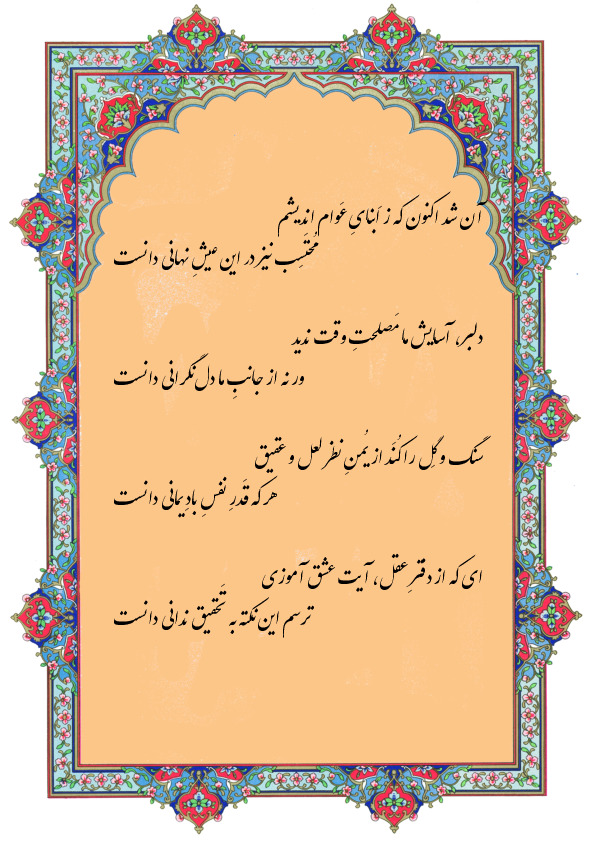 آن شد اکنون که ز اَبنایِ عَوام اندیشم
مُحتَسِب نیز در این عیشِ نهانی دانست
دلبر، آسایش ما مَصلحتِ وقت ندید
ور نه از جانبِ ما دل نگرانی دانست
سنگ و گِل را کُنَد از یُمنِ نظر لعل و عقیق
هر که قَدرِ نفسِ بادِ یمانی دانست
ای که از دفترِ عقل، آیت عشق آموزی
ترسم این نکته به تَحقیق ندانی دانست